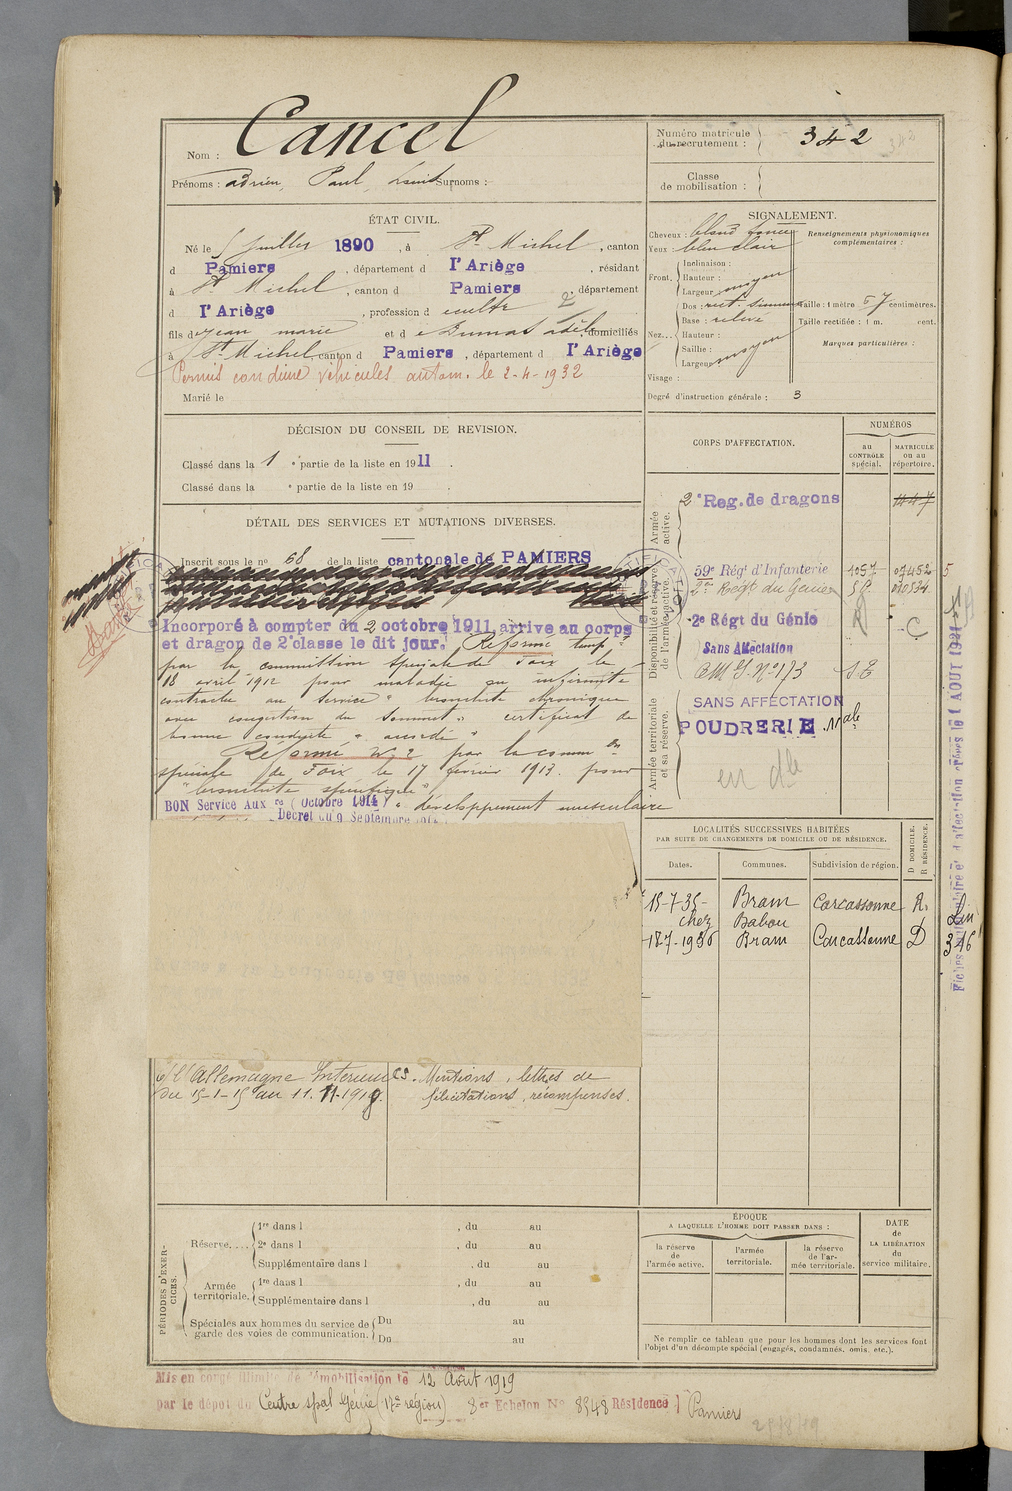 Nom : Cancel
Prénoms : Adrien, Paul, Surnoms :
Numéro matricule du recrutement : 342
Classe de mobilisation :
ÉTAT CIVIL.
Né le 5 juillet 1890, à St Michel, canton
d Pamiers, département d l'Ariège, résidant
à St Michel, canton d Pamiers, département
d l'Ariège, profession d cultr
fils d Jean Marie et d e Dumas adèle, domiciliés
à St Michel canton d Pamiers, département d l'Ariège
Permis conduire véhicules autom. le 2-4-1932
Marié le
SIGNALEMENT.
Cheveux : blond foncé
Yeux : bleu clair
Front. Inclinaison :
Hauteur :
Largeur : moyen
Nez... Dos : rect. sinueux
Base : relevé
Hauteur :
Saillie :
Largeur : moyen
Visage :
Renseignements physionomiques complémentaires :
Taille : 1 mètre 67 centimètres.
Taille rectifiée : 1 m. cent.
Marques particulières :
Degré d'instruction générale : 3
DÉCISION DU CONSEIL DE REVISION.
Classé dans la 1 e partie de la liste en 1911.
Classé dans la e partie de la liste en 19 .
CORPS D'AFFECTATION.
NUMÉROS
au CONTRÔLE spécial.
MATRICULE ou au répertoire.
Armée active.
2e Reg. de dragons 447
Disponibilité et réserve de l'armée active.
59e Régt d'Infanterie 1057
2e Régt du Génie
2e Régt du Génie C
Sans Affectation
OMG. No 173 S.E
Armée territoriale et sa réserve.
SANS AFFECTATION
POUDRERIE Nale
en dle
DÉTAIL DES SERVICES ET MUTATIONS DIVERSES.
Inscrit sous le no 68 de la liste cantonale de PAMIERS
Incorporé à compter du 2 octobre 1911, arrive au corps
et dragon de 2e classe le dit jour. Réformé tempre
par la commission spéciale de Foix le
18 avril 1912 pour maladie ou infirmité
contractée au service "bronchite chronique
avec congestion du sommet" certificat de
bonne conduite "accordé"
Réformé No 2 par la common
spéciale de Foix le 17 février 1913. pour
"bronchite spécifique"
BON Service Auxre (Octobre 1914) "développement musculaire
Décret du 9 Septembre 1914
LOCALITÉS SUCCESSIVES HABITÉES
PAR SUITE DE CHANGEMENTS DE DOMICILE OU DE RÉSIDENCE.
Dates.
Communes.
Subdivision de région.
D DOMICILE.
R RÉSIDENCE.
15-7-35- Bram Carcassonne R.
chez Babou
187-1936 Bram Carcassonne D
Fiches d'affectation créées le 1 AOUT 1921
C/ l'Allemagne Intérieur
Du 15-1-15 au 11.11-1918.
Mentions, lettres de
félicitations, récompenses.
PÉRIODES D'EXERCICES.
Réserve.... 1re dans l , du au
2e dans l , du au
Supplémentaire dans l , du au
Armée territoriale. 1re dans l , du au
Supplémentaire dans l , du au
Spéciales aux hommes du service de garde des voies de communication. Du au
Du au
ÉPOQUE
A LAQUELLE L'HOMME DOIT PASSER DANS :
la réserve de l'armée active.
l'armée territoriale.
la réserve de l'armée territoriale.
DATE de LA LIBÉRATION du service militaire.
Ne remplir ce tableau que pour les hommes dont les services font
l'objet d'un décompte spécial (engagés, condamnés, omis, etc.).
Mis en congé illimité de démobilisation le 12 Août 1919
par le dépôt du Centre spal Génie (17e région) 8e Echelon No 8348 Résidence Pamiers